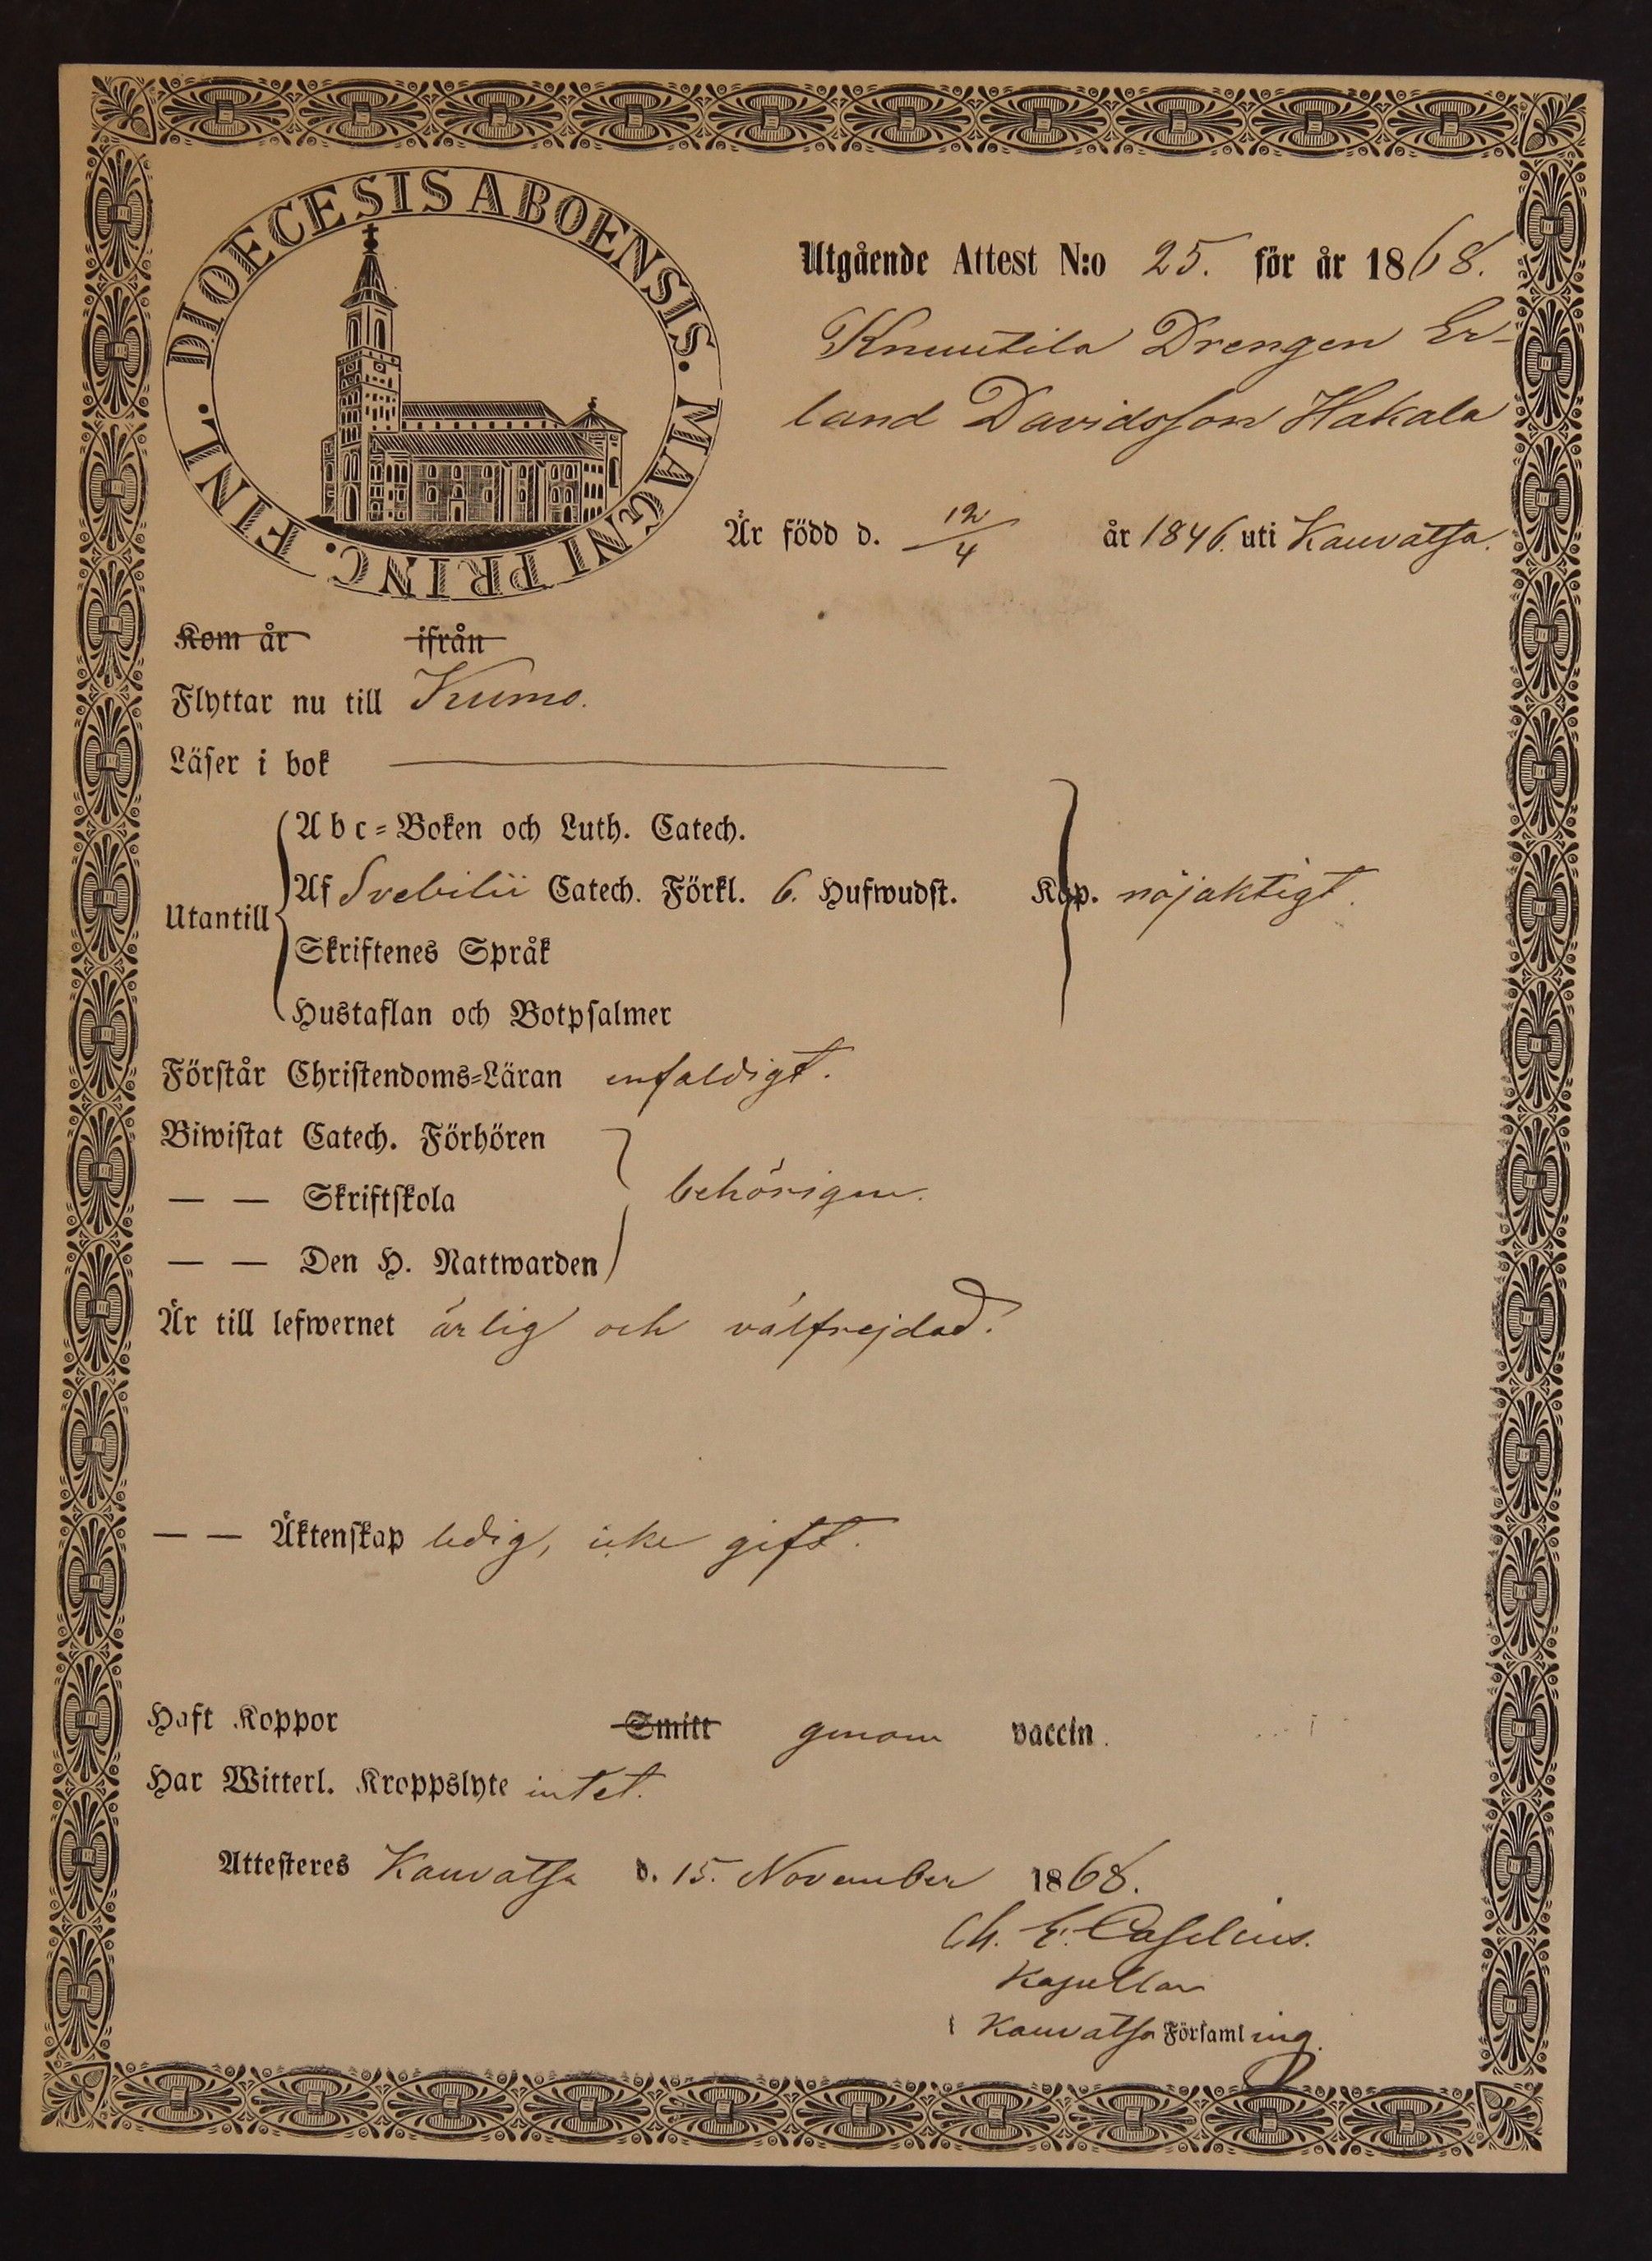 DIOECESIS ABOENSIS. MAGNI PRINC. FINL.
Utgående Attest N:o 25. för år 1868.
Knuutila Drengen Er-
land Davidsson Hakala
Är född d. 12/4 år 1846. uti Kauvatsa.
Kom år ifrån
Flyttar nu till Kumo.
Läser i bok
Abc-Boken och Luth. Catech.
Utantill Af Svebilii Catech. Förkl. 6. Hufwudst. Kap. nöjaktigt.
Skriftenes Språk
Hustaflan och Botpsalmer
Förstår Christendoms-Läran enfaldigt.
Biwistat Catech. Förhören
— — Skriftskola behörigen.
— — Den H. Nattwarden
Är till lefwernet ärlig och välfrejdad.
— — Äktenskap ledig, icke gift.
Haft Koppor Smitt genom vaccin.
Har Witterl. Kroppslyte intet.
Attesteres Kauvatsa d. 15. November 1868.
Ch. E. Caselius.
Kapellan
i Kauvatsa Församling.